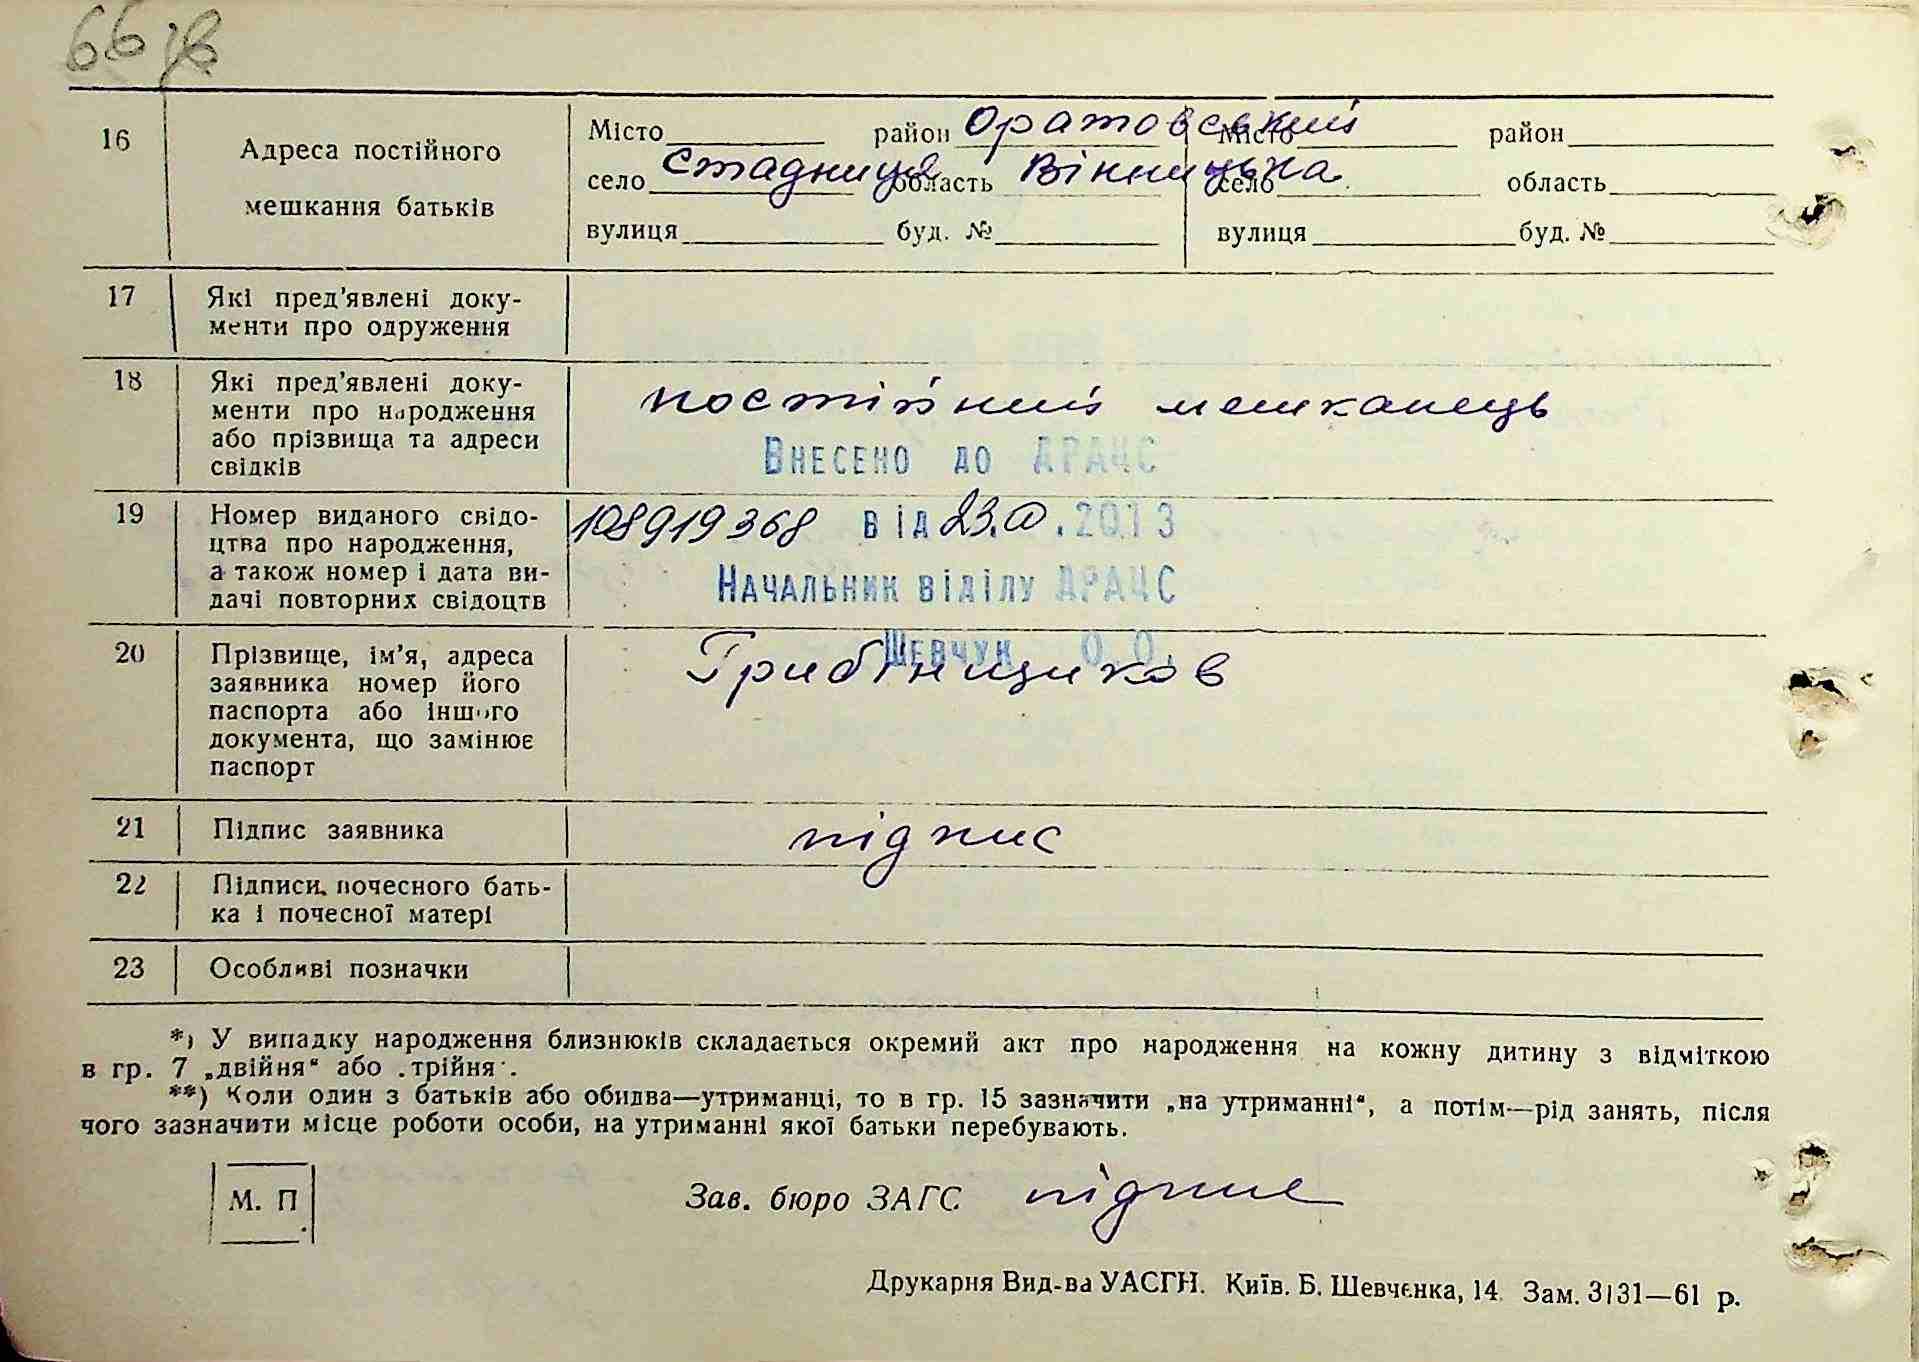 66 зв
16 Адреса постійного мешкання батьків
Місто район Оратовський Місто район
село Стадниця область Вінницька село область
вулиця буд. № вулиця буд. №
17 Які пред'явлені доку-
менти про одруження
18 Які пред'явлені доку-
менти про народження
або прізвища та адреси
свідків
постійний мешканець
Внесено до ДРАЦС
19 Номер виданого свідо-
цтва про народження,
а також номер і дата ви-
дачі повторних свідоцтв
108919368 від 23. .2013
Начальник відділу ДРАЦС
Шевчук О.О.
20 Прізвище, ім'я, адреса
заявника номер його
паспорта або іншого
документа, що замінює
паспорт
Грибінщиков
21 Підпис заявника підпис
22 Підписи почесного бать-
ка і почесної матері
23 Особливі позначки
*) У випадку народження близнюків складається окремий акт про народження на кожну дитину з відміткою
в гр. 7 „двійня“ або „трійня“.
**) Коли один з батьків або обидва—утриманці, то в гр. 15 зазначити „на утриманні“, а потім—рід занять, після
чого зазначити місце роботи особи, на утриманні якої батьки перебувають.
М. П.
Зав. бюро ЗАГС підпис
Друкарня Вид-ва УАСГН. Київ. Б. Шевченка, 14. Зам. 3131—61 р.